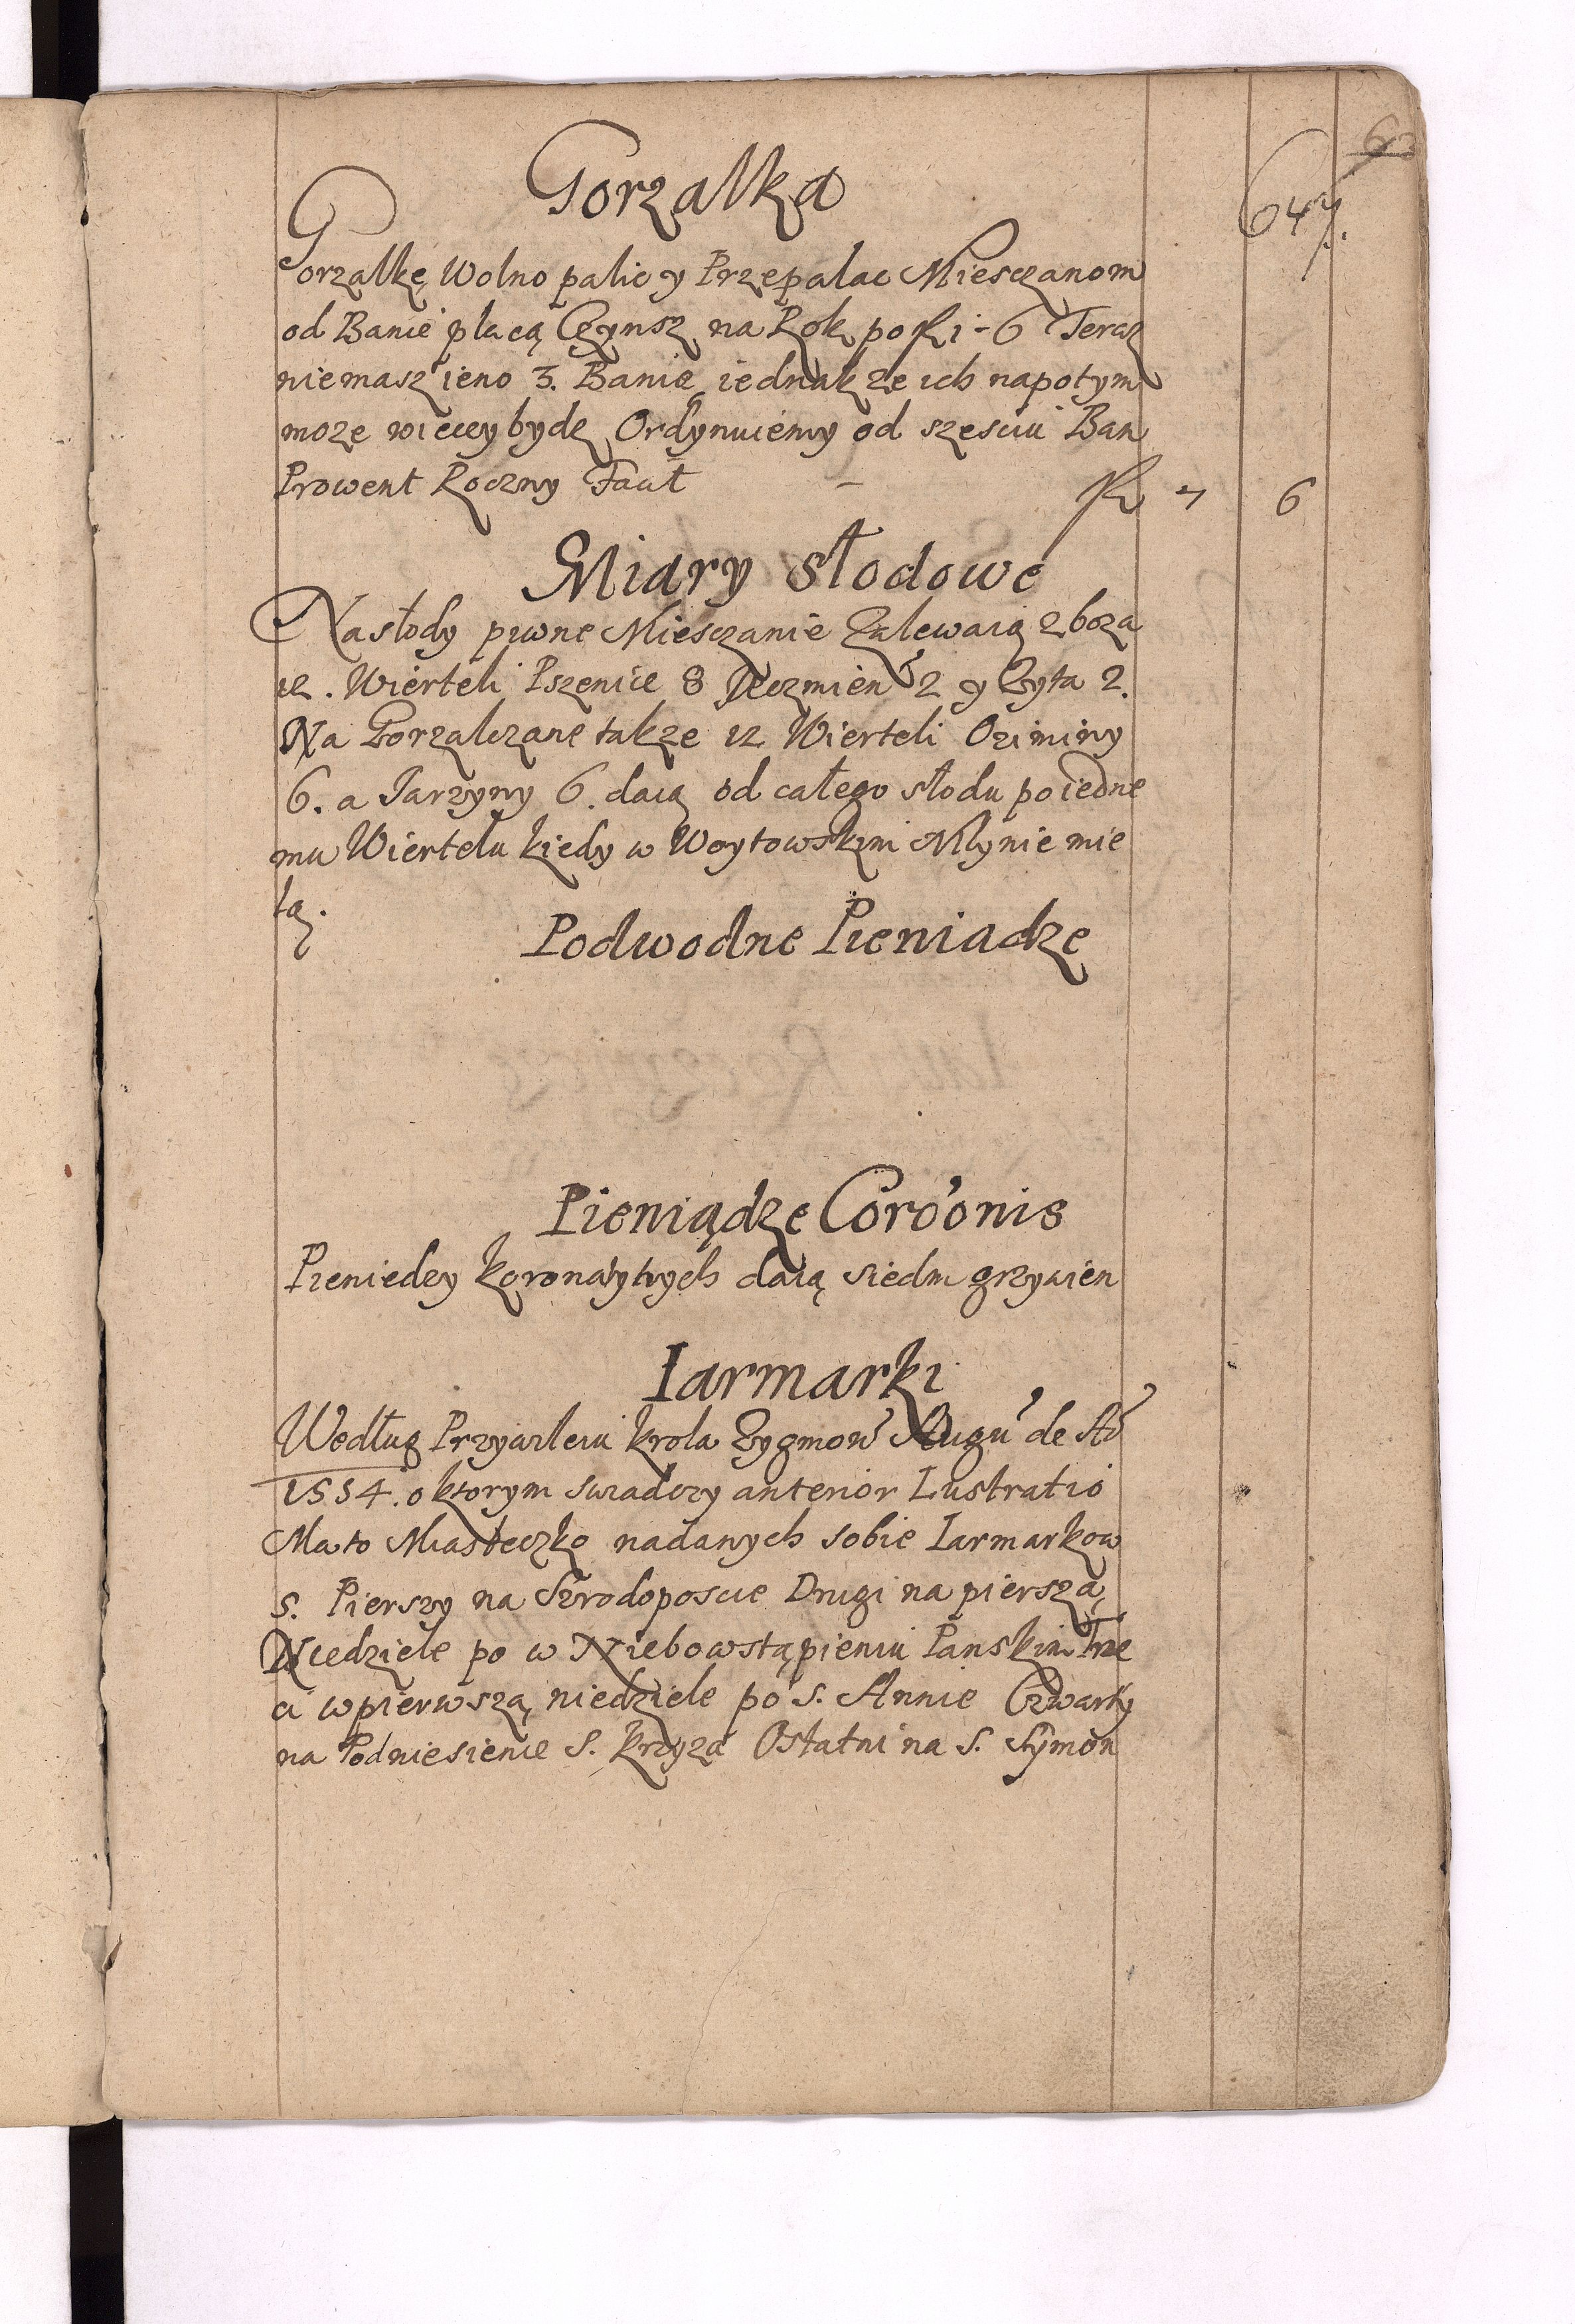 647.
Gorzalka
Gorzalkę Wolno palic y Przepalac Miesczanom
od Banie płacą Czynsz na Rok po fl 1 - 6 Teraz
niemasz ieno 3. Banie iednakze ich napotym
moze więcey bydz Ordynuiemy od szesciu Ban
Prowent Roczny Facit - fl 7 6
Miary słodowe
Na słody piwne Miesczanie Zalewaią zboza
12. Wierteli Pszenice 8 Ięczmien 2 y Zyta 2.
Na Gorzalczane takze 12 Wierteli Oziminy
6. a Jarzyny 6. daią od całego słodu po iedne
mu Wiertelu kiedy w Woytowskim Młynie mie
lą.
Podwodne Pieniadze
Pieniądze Coro'onis
Pieniedzy koronatynych daią siedm grzywien
Iarmarki
Według Przywileiu krola Zygmon Augu de Ao
1554. o ktorym swiadczy anterior Lustratio
Ma to Miasteczko nadanych sobie Iarmarkow
5. Pierszy na Szrodoposcie Drugi na pierszą
Niedziele po w Niebowstąpieniu Panskim Trze
ci w pierwszą niedziele po S. Annie Czwarty
na Podniesienie S. krzyza Ostatni na S. Symon